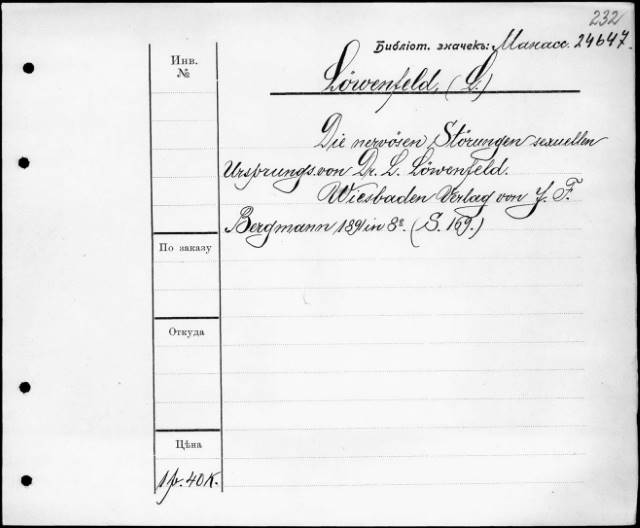 232
Библіот. значекъ: Манасс. 24647.
Инв.
№
Löwenfeld, (L.)
Die nervösen Störungen sexuellen
Ursprungs von Dr. L. Löwenfeld.
Wiesbaden Verlag von J. F.
Bergmann 1891 in 8º. (S. 169.)
По заказу
Откуда
Цѣна
1 р. 40 К.